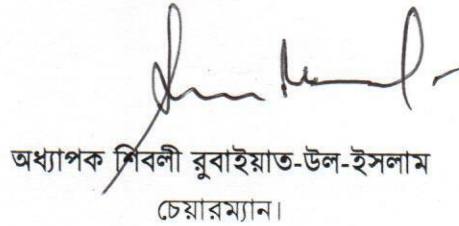 অধ্যাপক শিবলী রুবাইয়াত-উল-ইসলাম
চেয়ারম্যান।